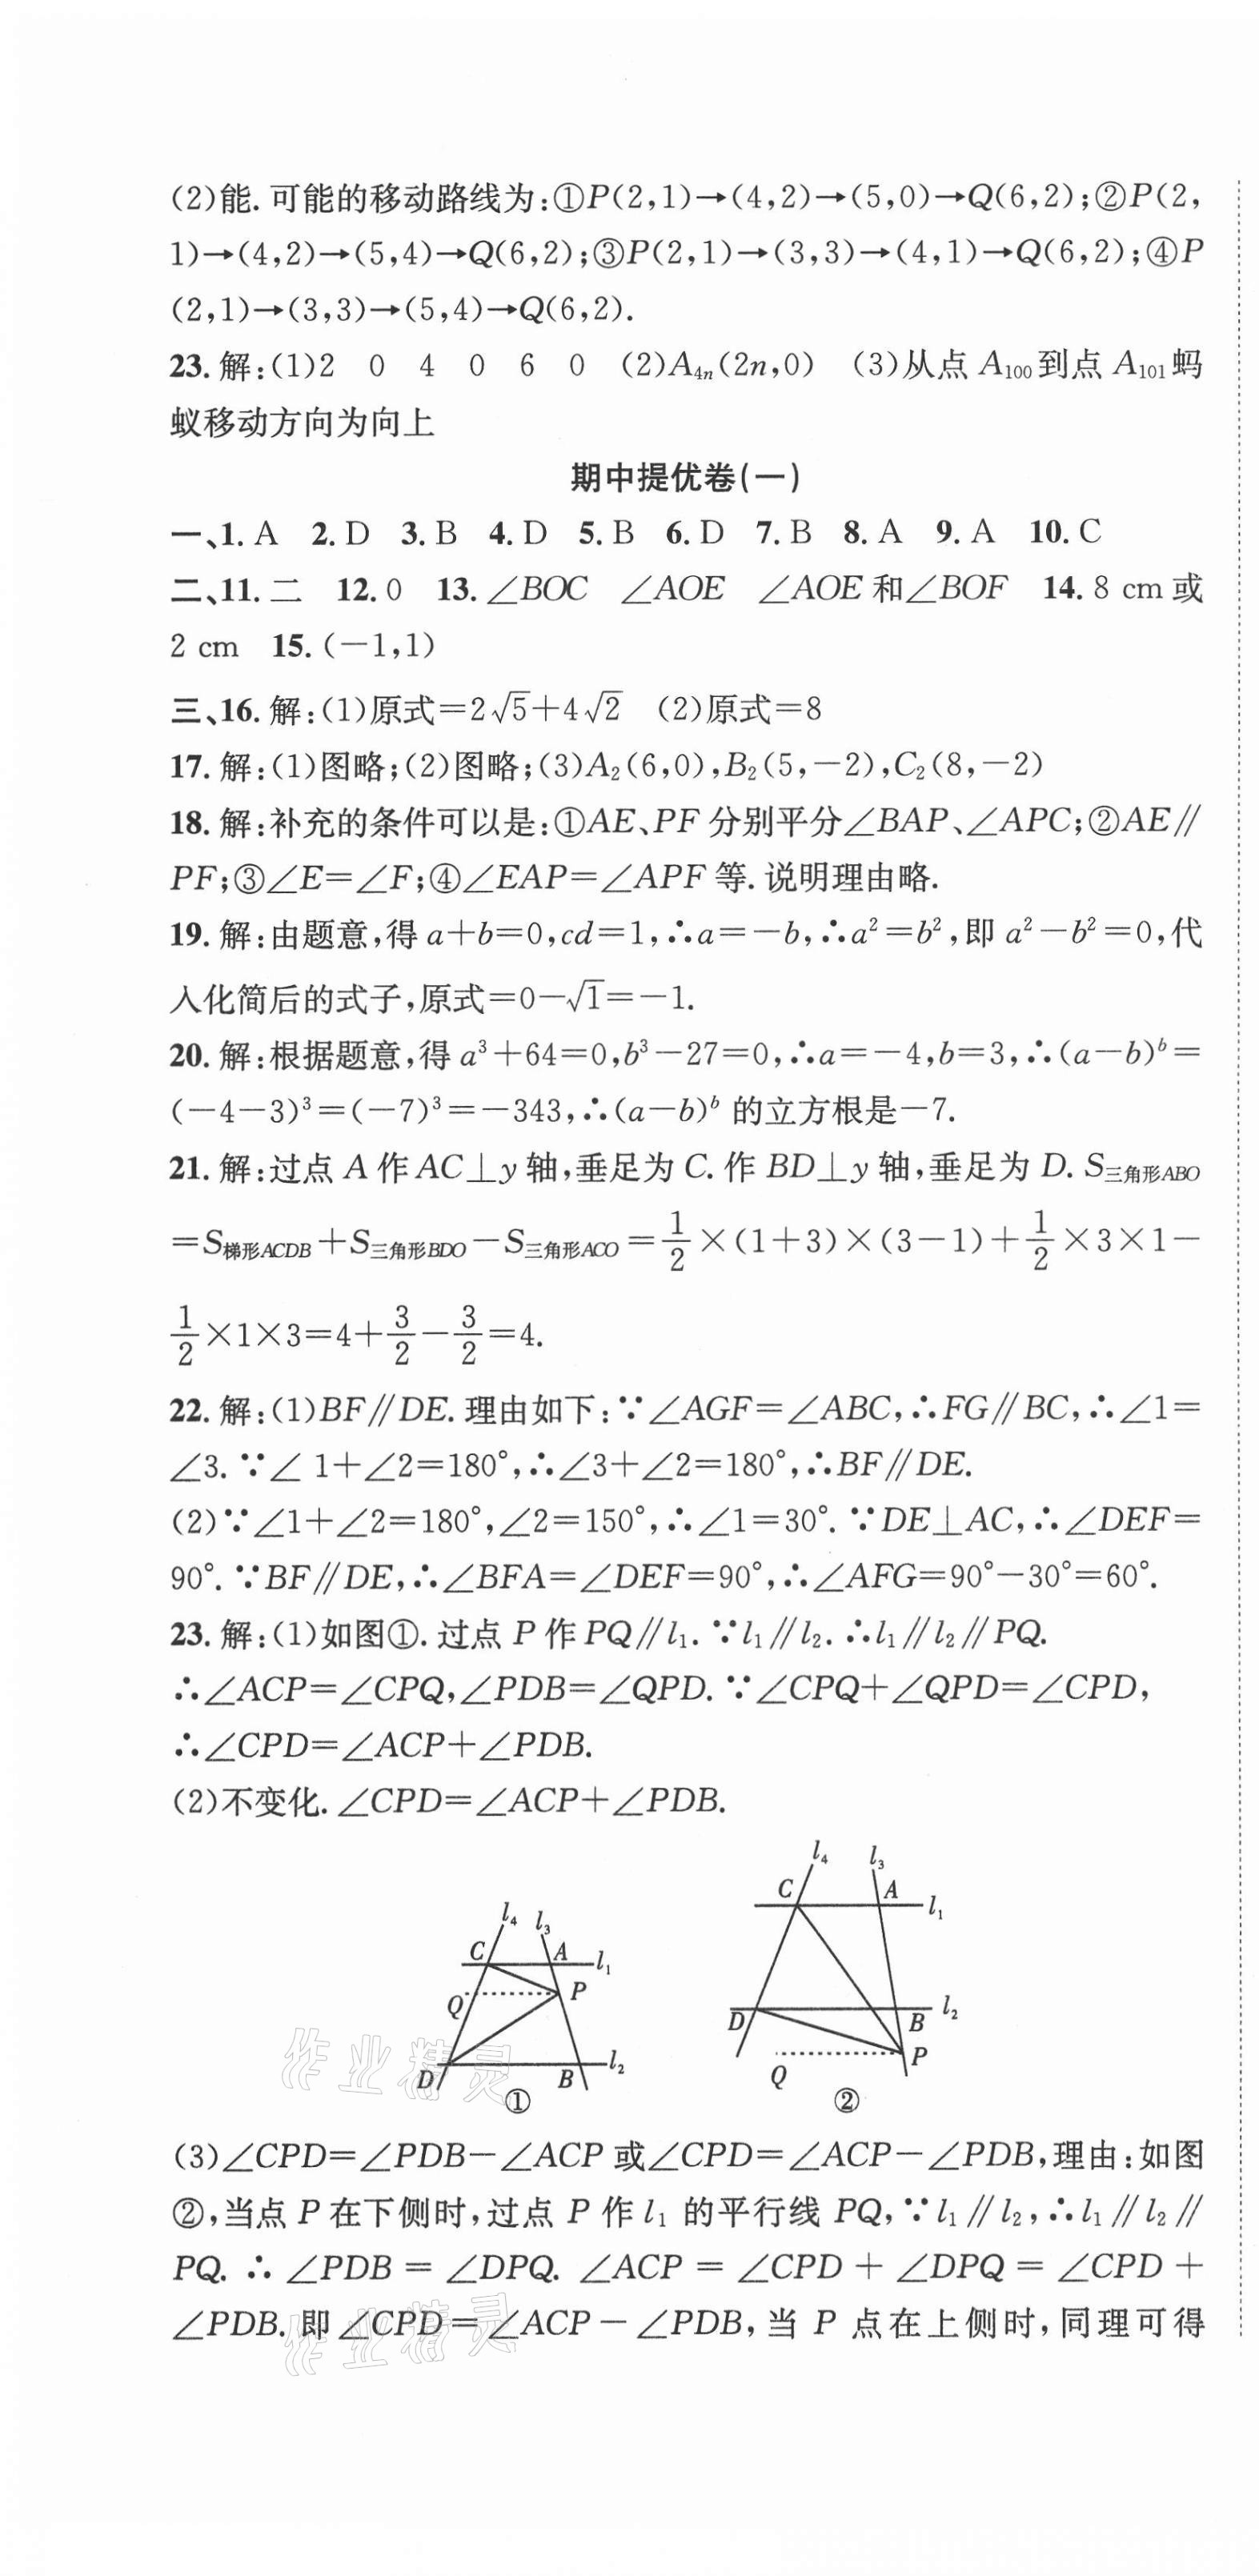 (2)能.可能的移动路线为:①P(2,1)→(4,2)→(5,0)→Q(6,2);②P(2,
1)→(4,2)→(5,4)→Q(6,2);③P(2,1)→(3,3)→(4,1)→Q(6,2);④P
(2,1)→(3,3)→(5,4)→Q(6,2).
23.解:(1)2 0 4 0 6 0 (2)A₄ₙ(2n,0) (3)从点A₁₀₀到点A₁₀₁蚂
蚁移动方向为向上
期中提优卷(一)
一、1.A 2.D 3.B 4.D 5.B 6.D 7.B 8.A 9.A 10.C
二、11.二 12.0 13.∠BOC ∠AOE ∠AOE和∠BOF 14.8 cm或
2 cm 15.(-1,1)
三、16.解:(1)原式=2√5+4√2 (2)原式=8
17.解:(1)图略;(2)图略;(3)A₂(6,0),B₂(5,-2),C₂(8,-2)
18.解:补充的条件可以是:①AE、PF分别平分∠BAP、∠APC;②AE∥
PF;③∠E=∠F;④∠EAP=∠APF等.说明理由略.
19.解:由题意,得a+b=0,cd=1,∴a=-b,∴a²=b²,即a²-b²=0,代
入化简后的式子,原式=0-√1=-1.
20.解:根据题意,得a³+64=0,b³-27=0,∴a=-4,b=3,∴(a-b)ᵇ=
(-4-3)³=(-7)³=-343,∴(a-b)ᵇ的立方根是-7.
21.解:过点A作AC⊥y轴,垂足为C.作BD⊥y轴,垂足为D.S三角形ABO
=S梯形ACDB+S三角形BDO-S三角形ACO=1/2×(1+3)×(3-1)+1/2×3×1-
1/2×1×3=4+3/2-3/2=4.
22.解:(1)BF∥DE.理由如下:∵∠AGF=∠ABC,∴FG∥BC,∴∠1=
∠3.∵∠1+∠2=180°,∴∠3+∠2=180°,∴BF∥DE.
(2)∵∠1+∠2=180°,∠2=150°,∴∠1=30°.∵DE⊥AC,∴∠DEF=
90°.∵BF∥DE,∴∠BFA=∠DEF=90°,∴∠AFG=90°-30°=60°.
23.解:(1)如图①.过点P作PQ∥l₁.∵l₁∥l₂.∴l₁∥l₂∥PQ.
∴∠ACP=∠CPQ,∠PDB=∠QPD.∵∠CPQ+∠QPD=∠CPD,
∴∠CPD=∠ACP+∠PDB.
(2)不变化.∠CPD=∠ACP+∠PDB.
l₄ l₃
C A l₁
Q P
D B l₂
①
l₄ l₃
C A l₁
D B l₂
Q P
②
作业精灵
(3)∠CPD=∠PDB-∠ACP或∠CPD=∠ACP-∠PDB,理由:如图
②,当点P在下侧时,过点P作l₁的平行线PQ,∵l₁∥l₂,∴l₁∥l₂∥
PQ.∴∠PDB=∠DPQ.∠ACP=∠CPD+∠DPQ=∠CPD+
∠PDB.即∠CPD=∠ACP-∠PDB,当P点在上侧时,同理可得
作业精灵